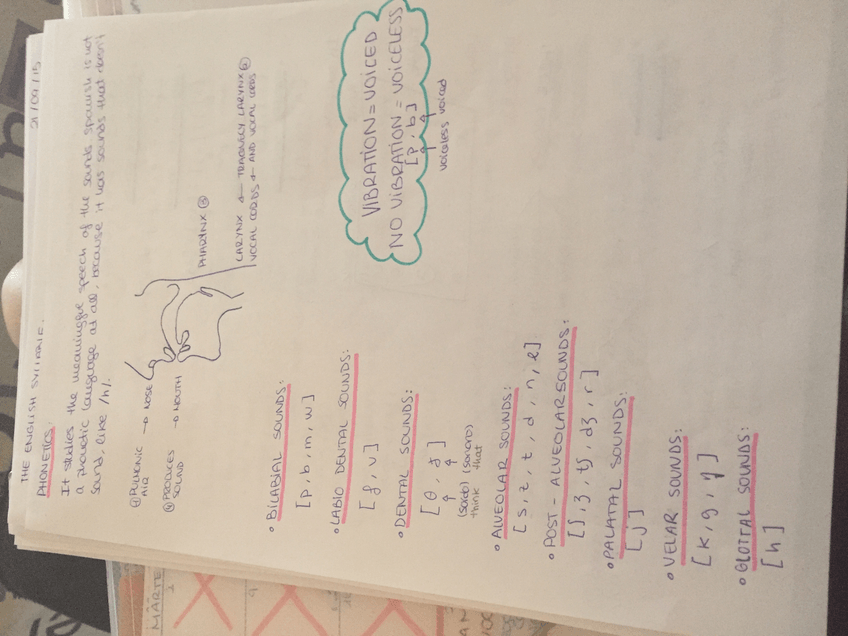 THE ENGLISH SYLLABLE. 21/09/15
PHONETICS:
It studies the meaningful speech of the sounds. Spanish is not
a phonetic language at all, because it has sounds that doesn't
sound, like /h/.
① PULMONIC AIR → NOSE
④ PRODUCES SOUND → MOUTH
PHARYNX ③
LARYNX ← LARYNX ②
VOCAL CORDS ← AND VOCAL CORDS
• BILABIAL SOUNDS:
[p, b, m, w]
VIBRATION = VOICED
NO VIBRATION = VOICELESS
[p, b]
voiceless voiced
• LABIO DENTAL SOUNDS:
[f, v]
• DENTAL SOUNDS:
[θ, ð]
(sordo) (sonoro)
think that
• ALVEOLAR SOUNDS:
[s, z, t, d, n, l]
• POST-ALVEOLAR SOUNDS:
[ʃ, ʒ, tʃ, dʒ, r]
• PALATAL SOUNDS:
[j]
• VELAR SOUNDS:
[k, g, ŋ]
• GLOTTAL SOUNDS:
[h]
MARTE